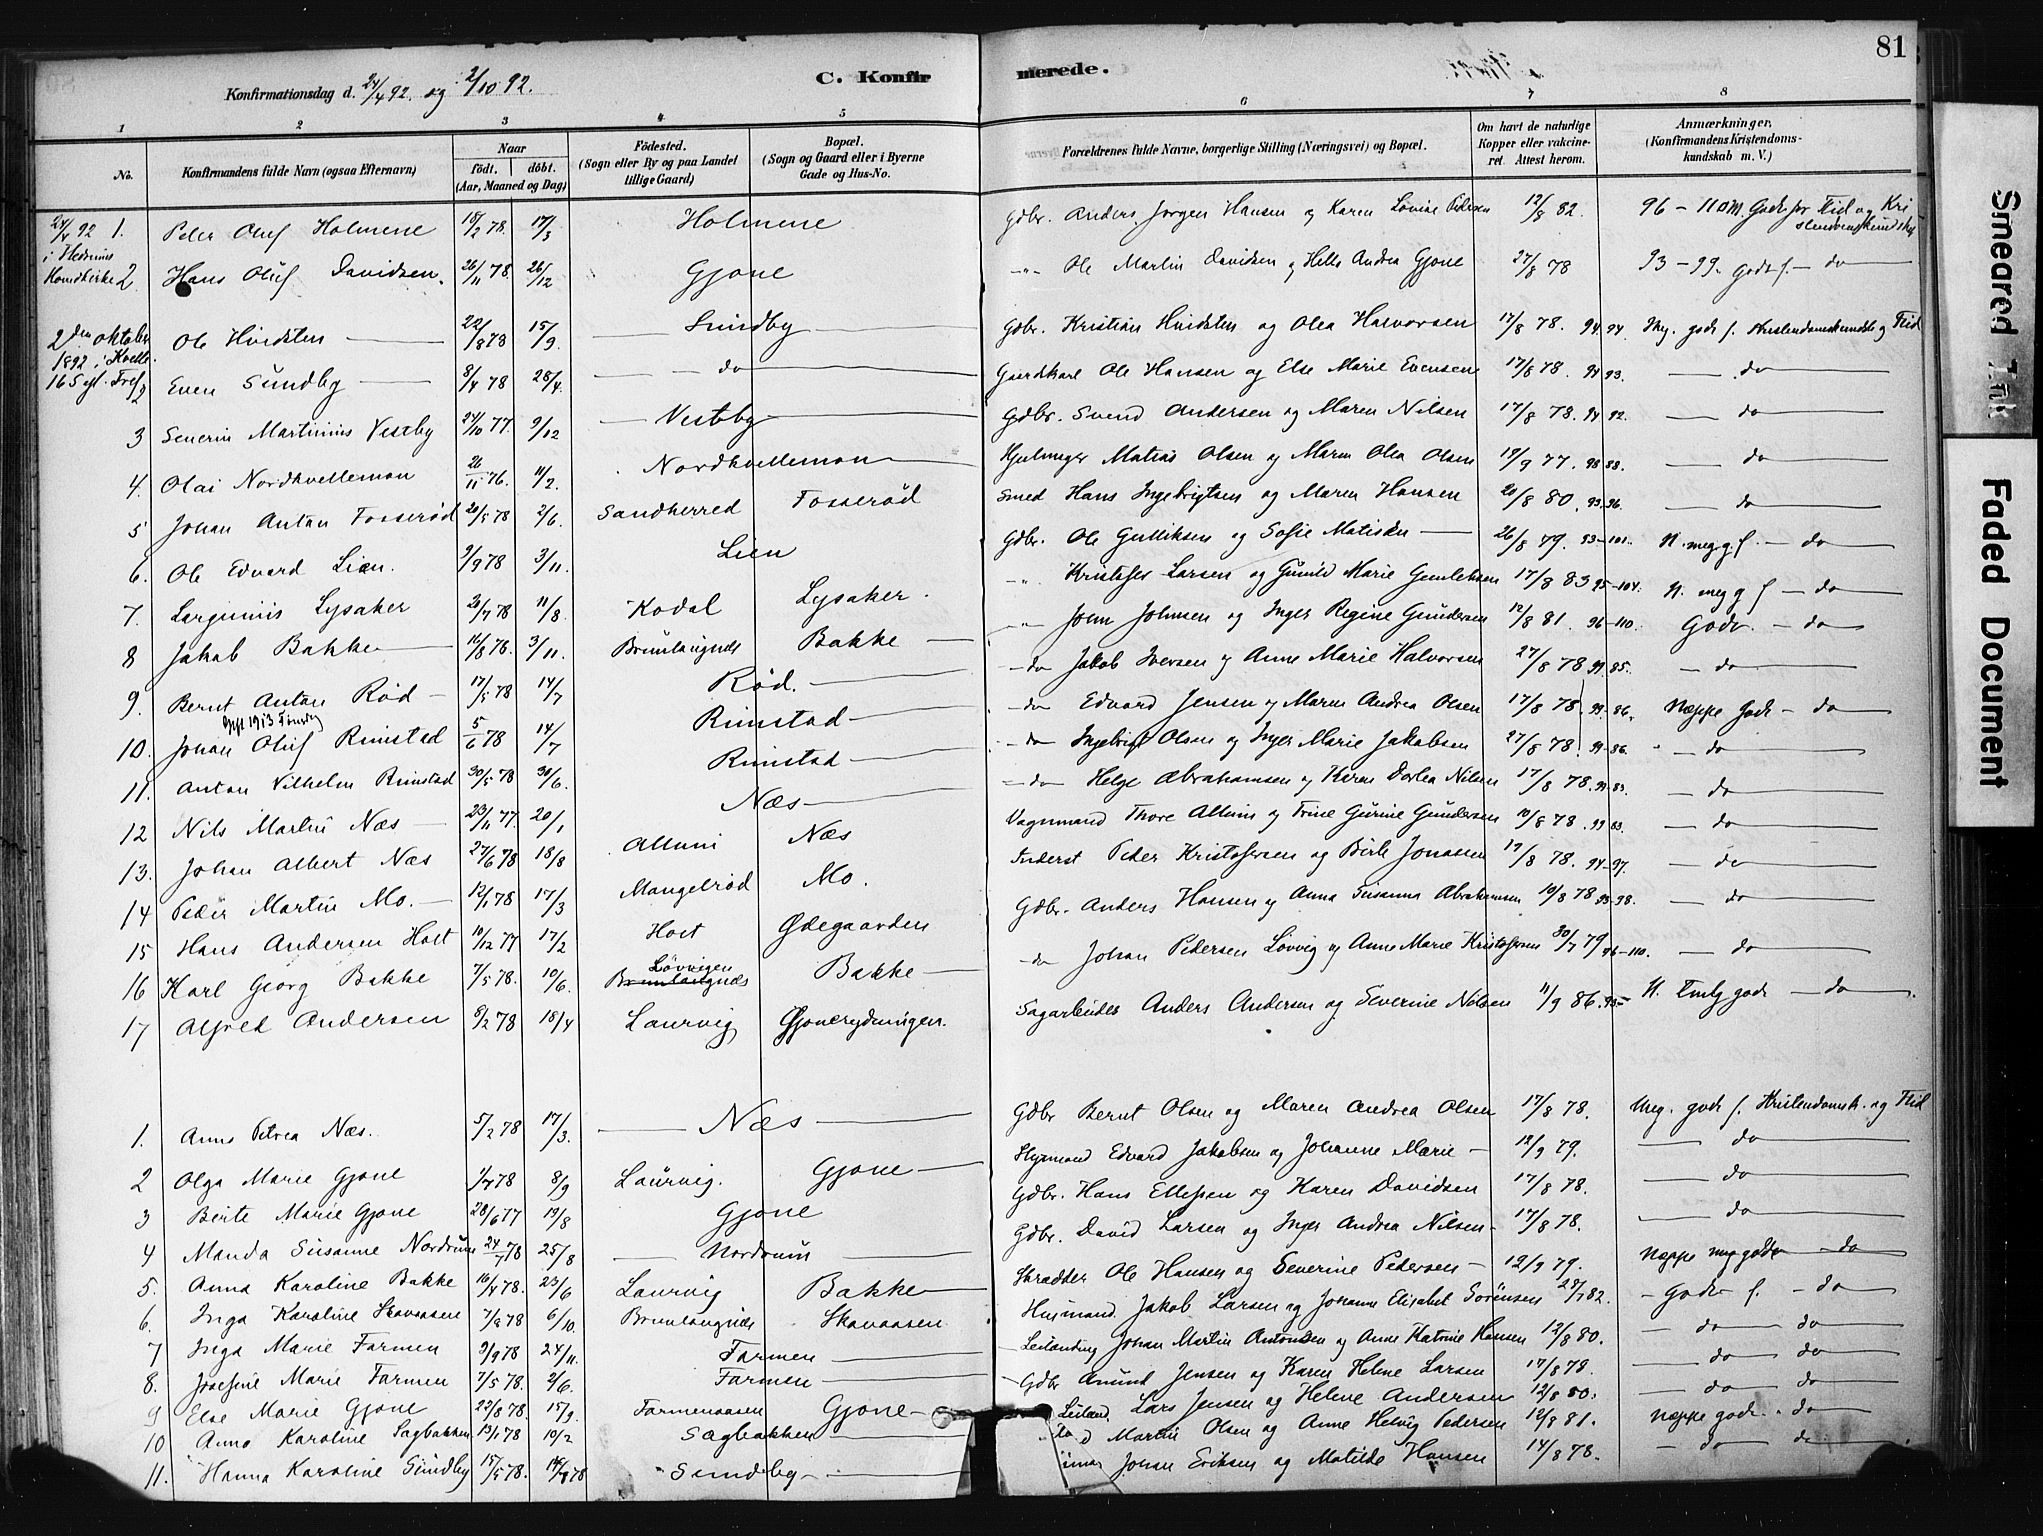 81
C. Konfirmerede.
Konfirmationsdag d. 24/4 92. og 2/10 92.
1 2 3 4 5 6 7 8
No.
Konfirmandens fulde Navn (ogsaa Efternavn)
Naar
födt. döbt.
(Aar, Maaned og Dag)
Födested.
(Sogn eller By og paa Landet
tillige Gaard)
Bopæl.
(Sogn og Gaard eller i Byerne
Gade og Hus-No.
Forældrenes fulde Navne, borgerlige Stilling (Næringsvei) og Bopæl.
Om havt de naturlige
Kopper eller vakcine-
ret. Attest herom.
Anmærkninger.
(Konfirmandens Kristendoms-
kundskab m. V.)
24/4 92 1. Peter Oluf Holmene 15/2 78. 17/3 Holmene Gdbr. Anders Jorgen Hansen og Karen Lovise Pedersen 12/8 82. 96 - 110
2 Hans Oluf Davidsen. 26/11 78 26/12 Gjone Ole Martin Davidsen og Helle Andrea Gjone 27/8 78 93 - 99. godt f. - do
2den Oktober
1892 i Kvelle.
Ole Hvidsten 22/8 78 15/9. Sundby Gdbr. Kristian Hvidsten og Olea Halvorsen 17/8 78. 94 94. Meg. godt f. Kristendomskundsk og Flid
2 Even Sundby 8/4 78 28/4. do Gaardkarl Ole Hansen og Else Marie Evensen 17/8 78. 94 93. do
3 Severin Martinius Vestby 24/10 77. 9/12 Vestby Gdbr. Svend Andersen og Maren Nilsen 17/8 78. 94 92. do
4. Olai Nordkvellemon 26/11 76. 11/2. Nordkvellemon Hjulmager Matias Olsen og Maren Olea Olsen 19/9 77. 98 88. do
5 Johan Anton Fosserød 20/5 78 2/6. Sandherred Fosserød Smed Hans Ingebrigtsen og Maren Hansen 20/8 80. 93. 96. do
6. Ole Edvard Lien. 9/9 78 3/11. Lien Gdbr. Ole Gulliksen og Sofie Matisdr 26/8 79. 93-101. N. meg. g. f. - do
7. Larginius Lysaker 20/7 78 11/8. Kodal Lysaker. Kristofer Larsen og Gunild Marie Gunleksen 17/8 83 95-104. N. meg g f - do
8 Jakob Bakke 16/8 78. 3/11. Brunlangnæs Bakke John Johnsen og Inger Regine Gundersen 12/8 81. 96-110. Godt - do
9. Bernt Anton Rød 17/5 78 14/7 Rød. do Jakob Iversen og Anne Marie Halvorsen 27/8 78 99. 85. do
Gift 1913
10. Johan Oluf Rimstad 5/6 78 14/7 Rimstad do Edvard Jensen og Maren Andrea Olsen 17/8 78. 99. 86. Næppe godt - do
11. Anton Vilhelm Rimstad 30/5 78 30/6. Rimstad do Ingebrigt Olsen og Inger Marie Jakobsen 27/8 78. 99-86. do
12 Nils Martin Næs 23/11 77. 20/1 Næs do Helge Abrahamsen og Karen Dorthea Nilsen 17/8 78. 99. 83. do
13. Johan Albert Næs 27/6 78 18/8 Allum Næs Vognmand Thore Allum og Trine Gurine Gundersen 10/8 78. 99 83. do
14 Peder Martin Mo. 12/1 78 17/3 Mangelrød Mo. Inderst Peder Kristofersen og Birte Jonassen 19/8 78. 94-97. do
15 Hans Andersen Holt 10/12 77 17/2 Holt Ødegaarden Gdbr. Anders Hansen og Anna Susanna Abrahamsen 10/8 78 93-98. do
16 Karl Georg Bakke 7/5 78. 10/6. Løvvigen Brunlangnæs Bakke do Johan Pedersen Løvvig og Anne Marie Kristofersen 30/7 79 96-110. do
17 Alfred Andersen 9/2 78 18/4 Laurvig Gjonerydningen. Sagarbeider Anders Andersen og Severine Nilsen 11/9 86. 93- N. Tmlg godt - do
1. Anne Petrea Næs. 5/2 78 17/3. Næs Gdbr Bernt Olsen og Maren Andrea Olsen 17/8 78. Meg. godt f. Kristendomsk. og Flid
2 Olga Marie Gjone 1/7 78 8/9 Laurvig. Gjone Edvard Jakobsen og Johanne Marie 12/9 79. do
3 Birte Marie Gjone 28/6 77 19/8 Gjone Gdbr. Hans Ellefsen og Karen Davidsen 17/8 78. do
4 Manda Susanne Nordrum 24/7 78 25/8 Nordrum Gdbr. David Larsen og Inger Andrea Nilsen 17/8 78. do
5. Anna Karoline Bakke 16/4 78. 23/6 Laurvig Bakke Skrædder Ole Hansen og Severine Pedersen 12/9 79. Næppe meg godt - do
6. Inga Karoline Skavaasen 7/8 78 6/10. Brunlangnæs Skavaasen Husmand Jakob Larsen og Johanne Elisabet Sørensen 27/7 82. Godt f. - do
7 Inga Marie Farmen 9/9 78 24/11. Farmen Leilænding Johan Martin Antonsen og Anne Katrine Hansen 12/8 80. do do
8. Josefine Marie Farmen 7/5 78. 2/6. Farmen Gdbr Amund Jensen og Karen Helene Larsen 17/8 78. do do
9 Else Marie Gjone 22/8 78. 15/9. Farmenaasen Gjone Leiland. Lars Jensen og Helene Andersen 12/8 80. do do
10 Anna Karoline Sagbakken 13/1 78 10/2 Sagbakken Martin Olsen og Anne Helvig Pedersen 12/8 81. Næppe godt. do
11. Hanna Karoline Sundby 15/5 78. Sundby Johan Eriksen og Matilde Hansen 14/8 78. do do
Smeared Ink
Faded Document